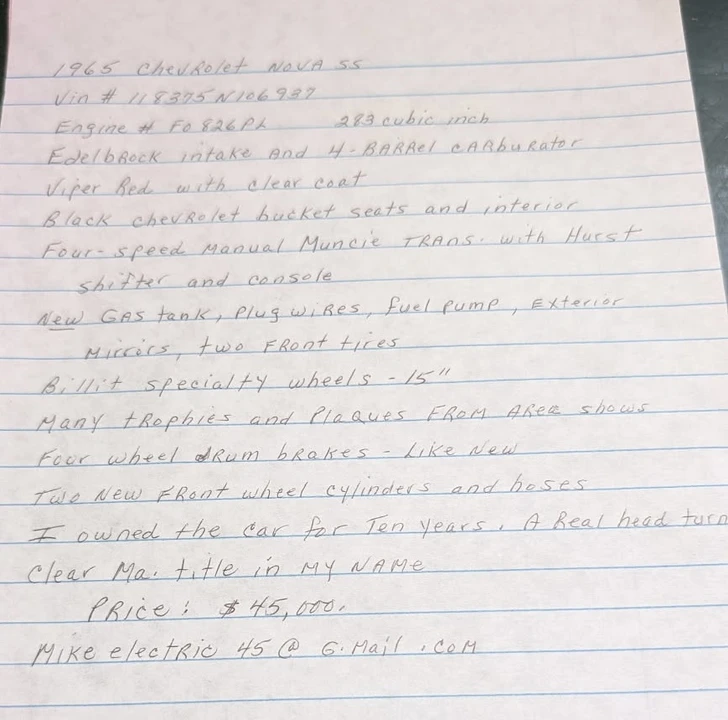 1965 Chevrolet Nova SS
Vin # 118375N106937
Engine # F0826PL 283 cubic inch
Edelbrock intake and 4-Barrel carburator
Viper Red with clear coat
Black chevrolet bucket seats and interior
Four-speed Manual Muncie Trans. with Hurst
shifter and console
New Gas tank, Plug wires, fuel pump, Exterior
Mirrors, two Front tires
Billit specialty wheels - 15"
Many trophies and Plaques From Area shows
Four wheel drum brakes - Like New
Two New Front wheel cylinders and hoses
I owned the car for Ten years. A Real head turn
Clear Ma. title in My Name
Price: $45,000.
Mike electric 45 @ G.Mail .com